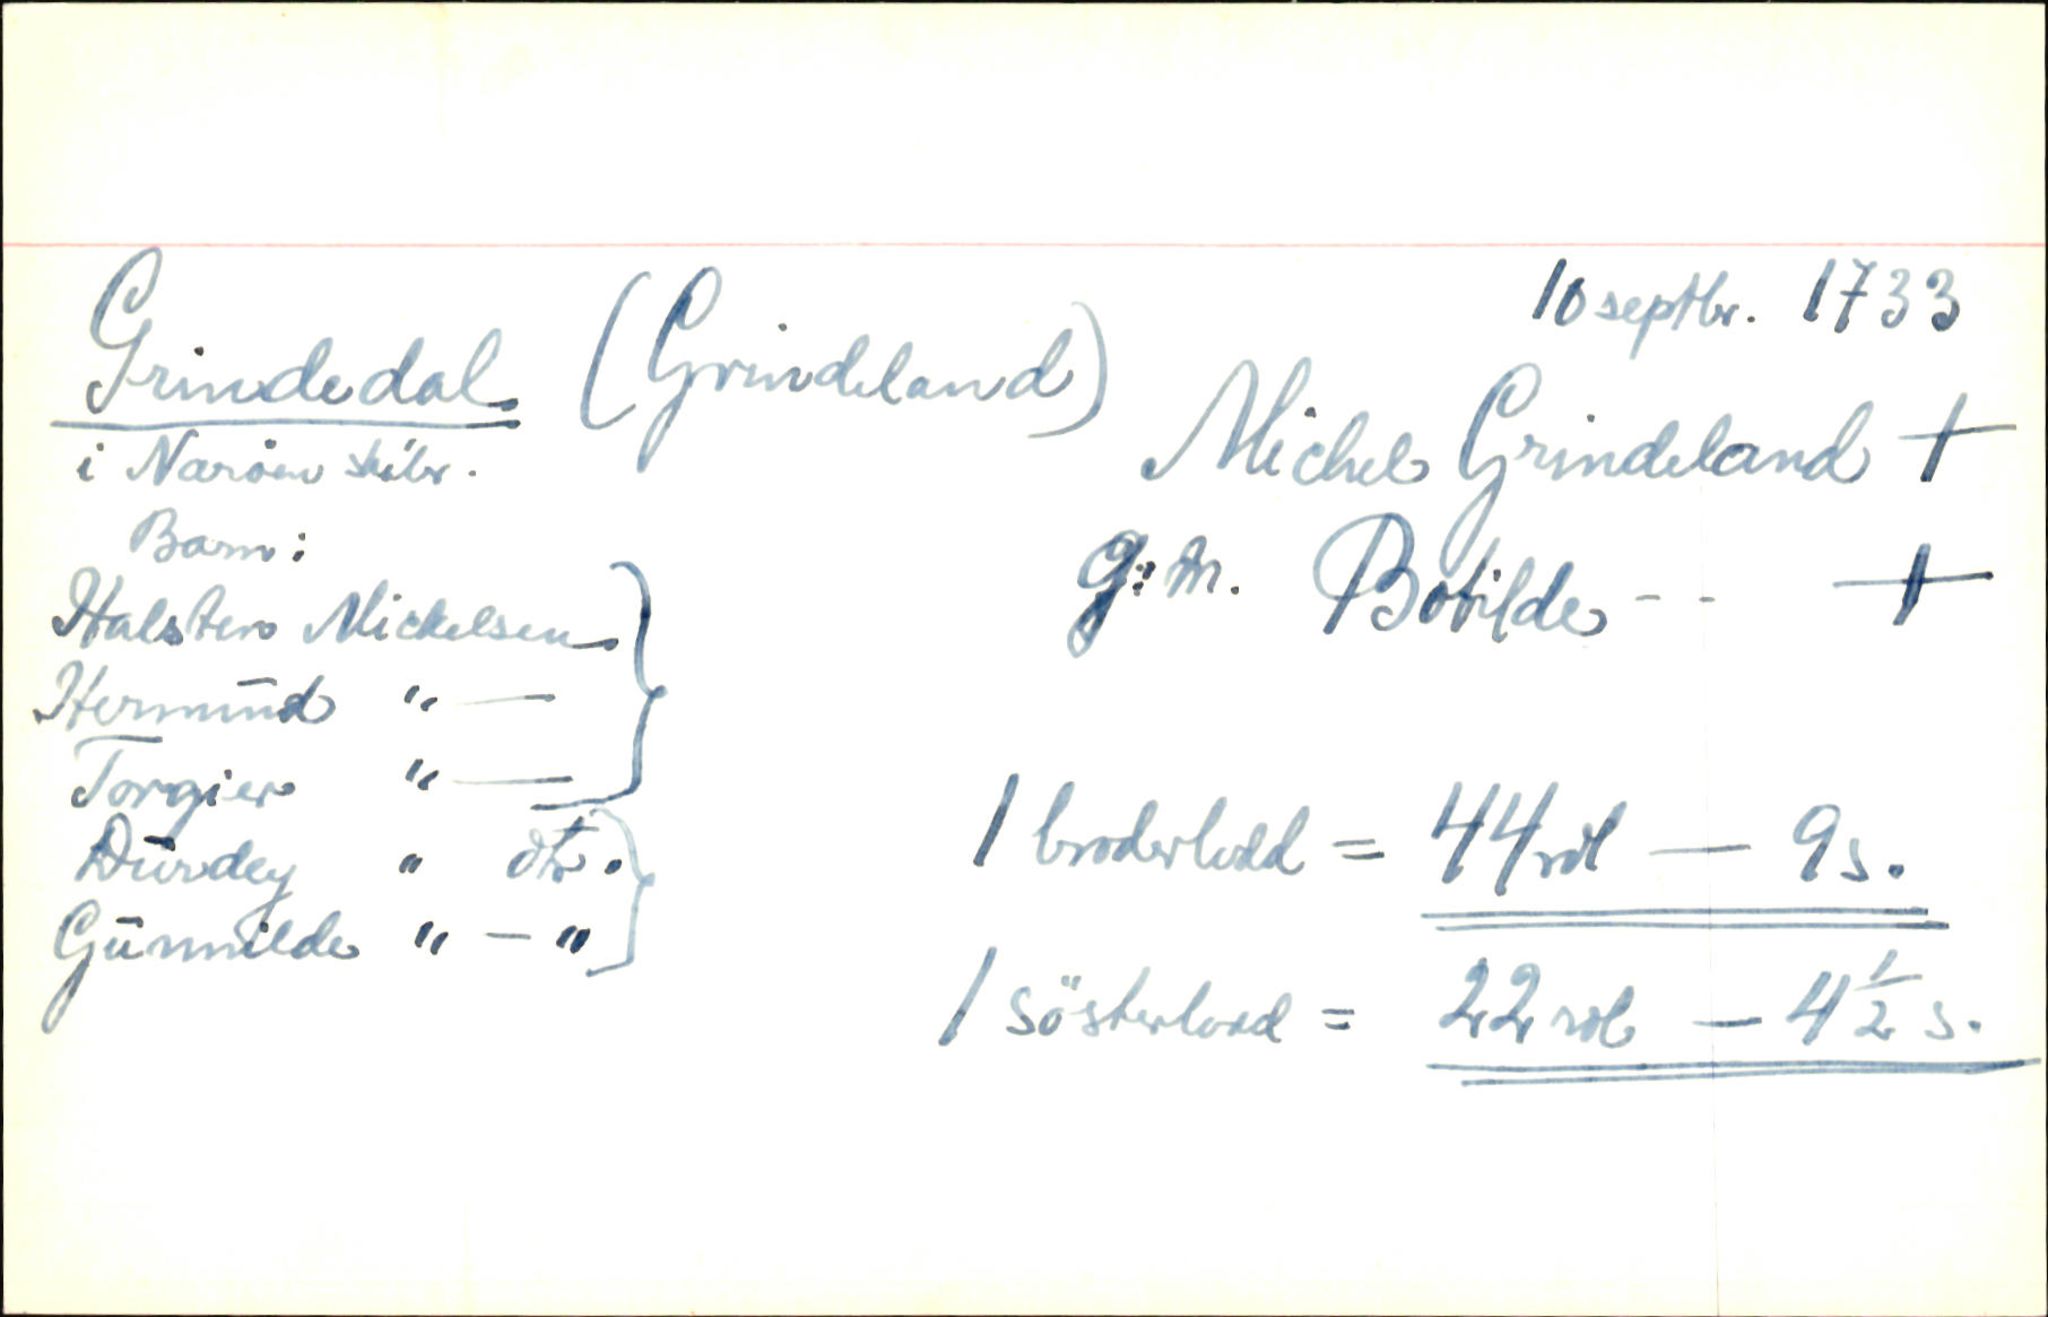 10 septbr. 1733
Grindedal (Grindeland)
i Naröen skibr.
Michel Grindeland +
g: m. Botilde - - +
Barn:
Halsten Mickelsen
Hermūnd " —
Torgier " —
Dūrdey " dtr.
Gūnnilde " — "
1 broderlodd = 44 rdl — 9 s.
1 sösterlodd = 22 rdl — 4 1/2 s.